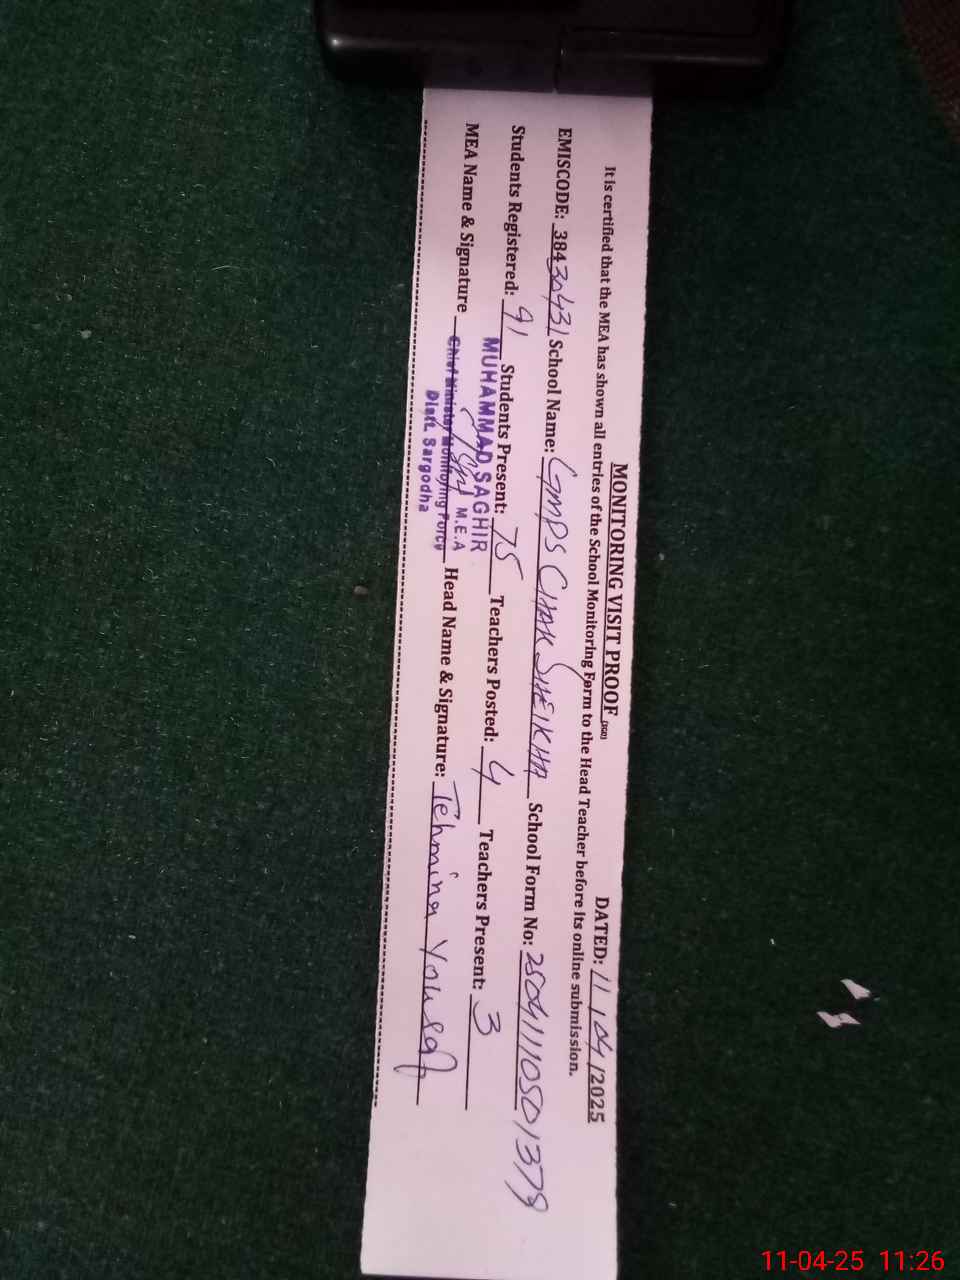 MONITORING VISIT PROOF (SGD) DATED: 11/04/2025
It is certified that the MEA has shown all entries of the School Monitoring Form to the Head Teacher before its online submission.
EMISCODE: 38430431 School Name: GMPS CHAK SHEIKHA School Form No: 25041110501379
Students Registered: 91 Students Present: 75 Teachers Posted: 4 Teachers Present: 3
MUHAMMAD SAGHIR
M.E.A
MEA Name & Signature Chief Minister Monitoring Force Head Name & Signature: Tehmina Yousaf
Distt. Sargodha
11-04-25 11:26